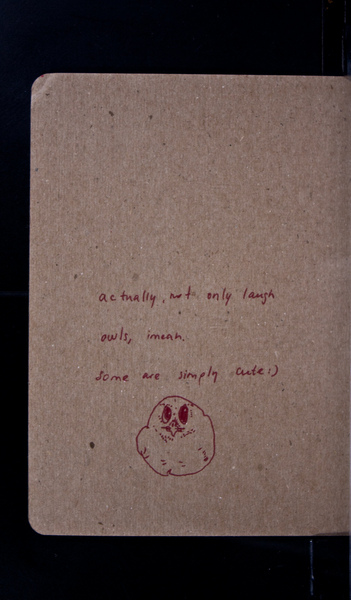 actually, not only laugh
owls, imean.
some are simply cute:)